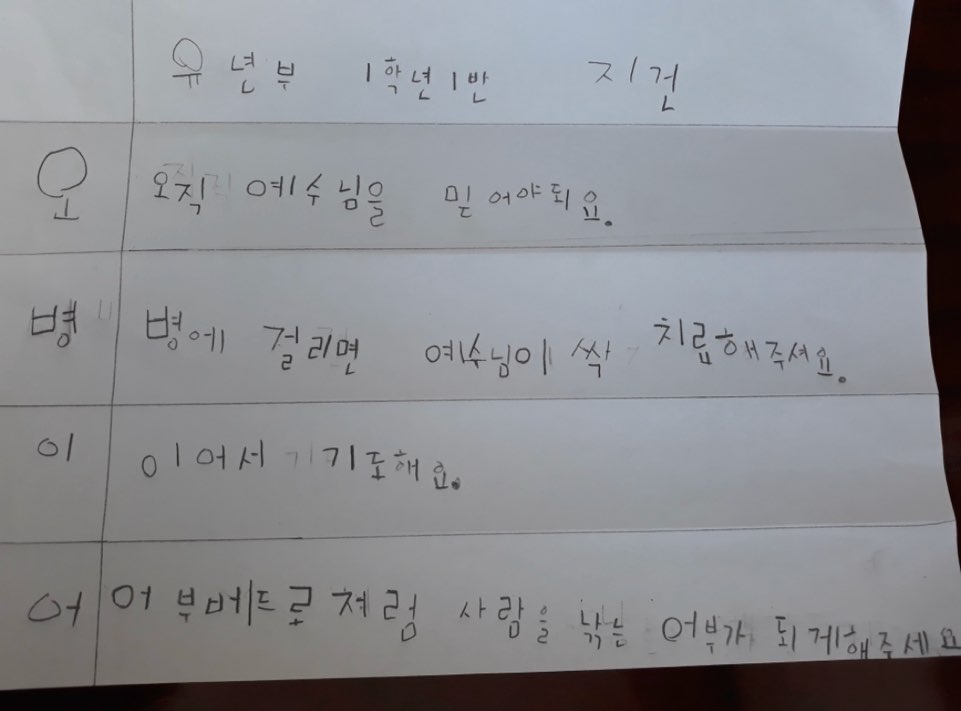 유년부 1학년1반 지건
오 오직 예수님을 믿어야되요.
병 병에 걸리면 예수님이 싹 치료해주셔요.
이 이어서 기도해요.
어 어부베드로쳐럼 사람을 낚는 어부가 되게해주세요